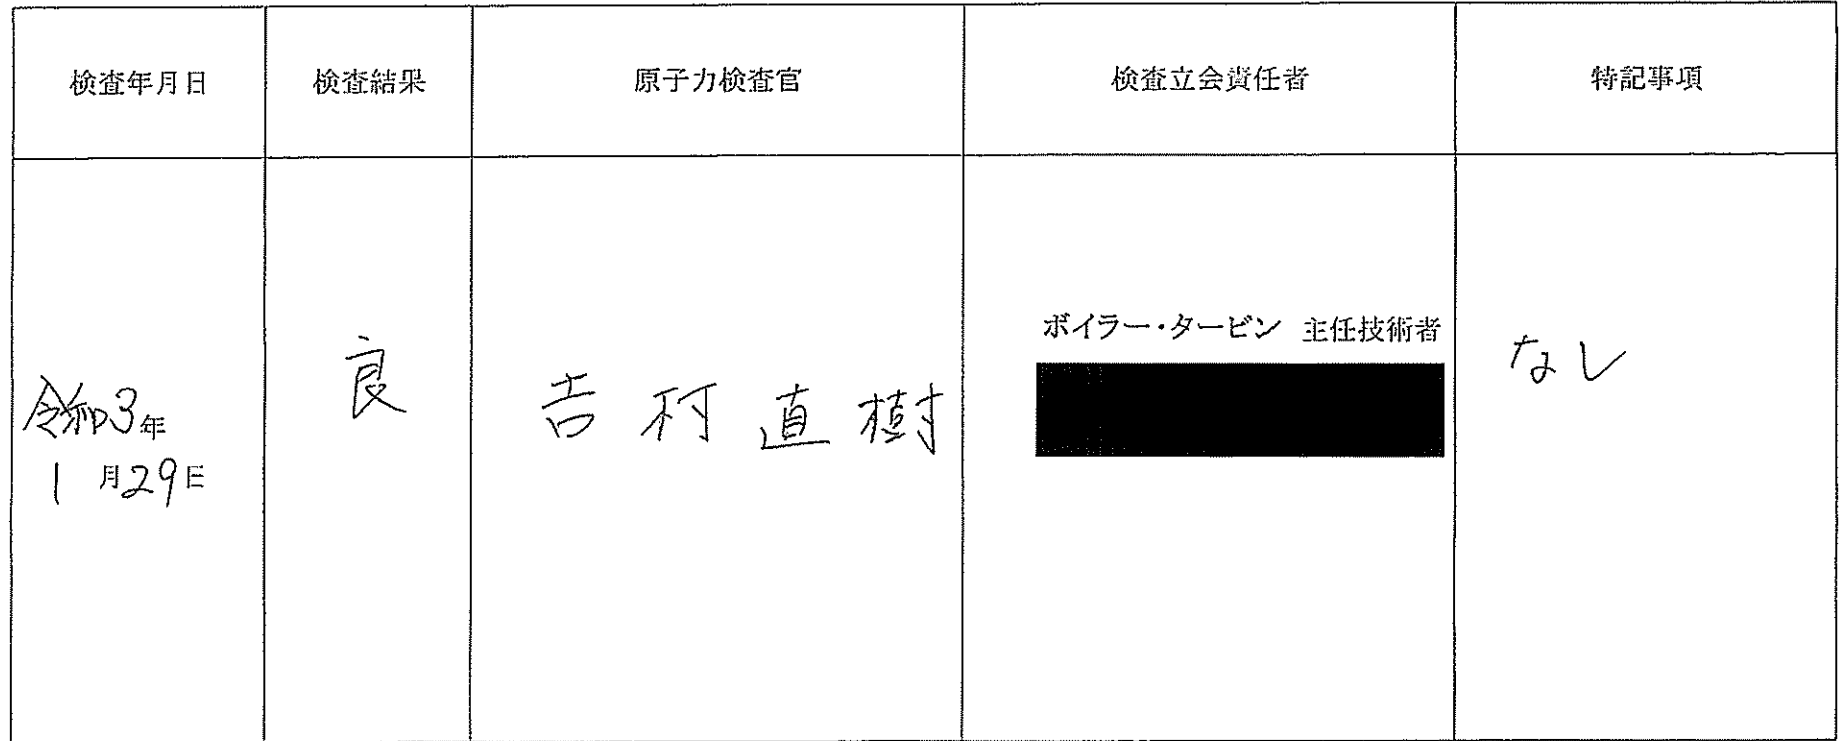 検査年月日 検査結果 原子力検査官 検査立会責任者 特記事項
令和3年
1月29日
良
吉村直樹
ボイラー・タービン 主任技術者
なし